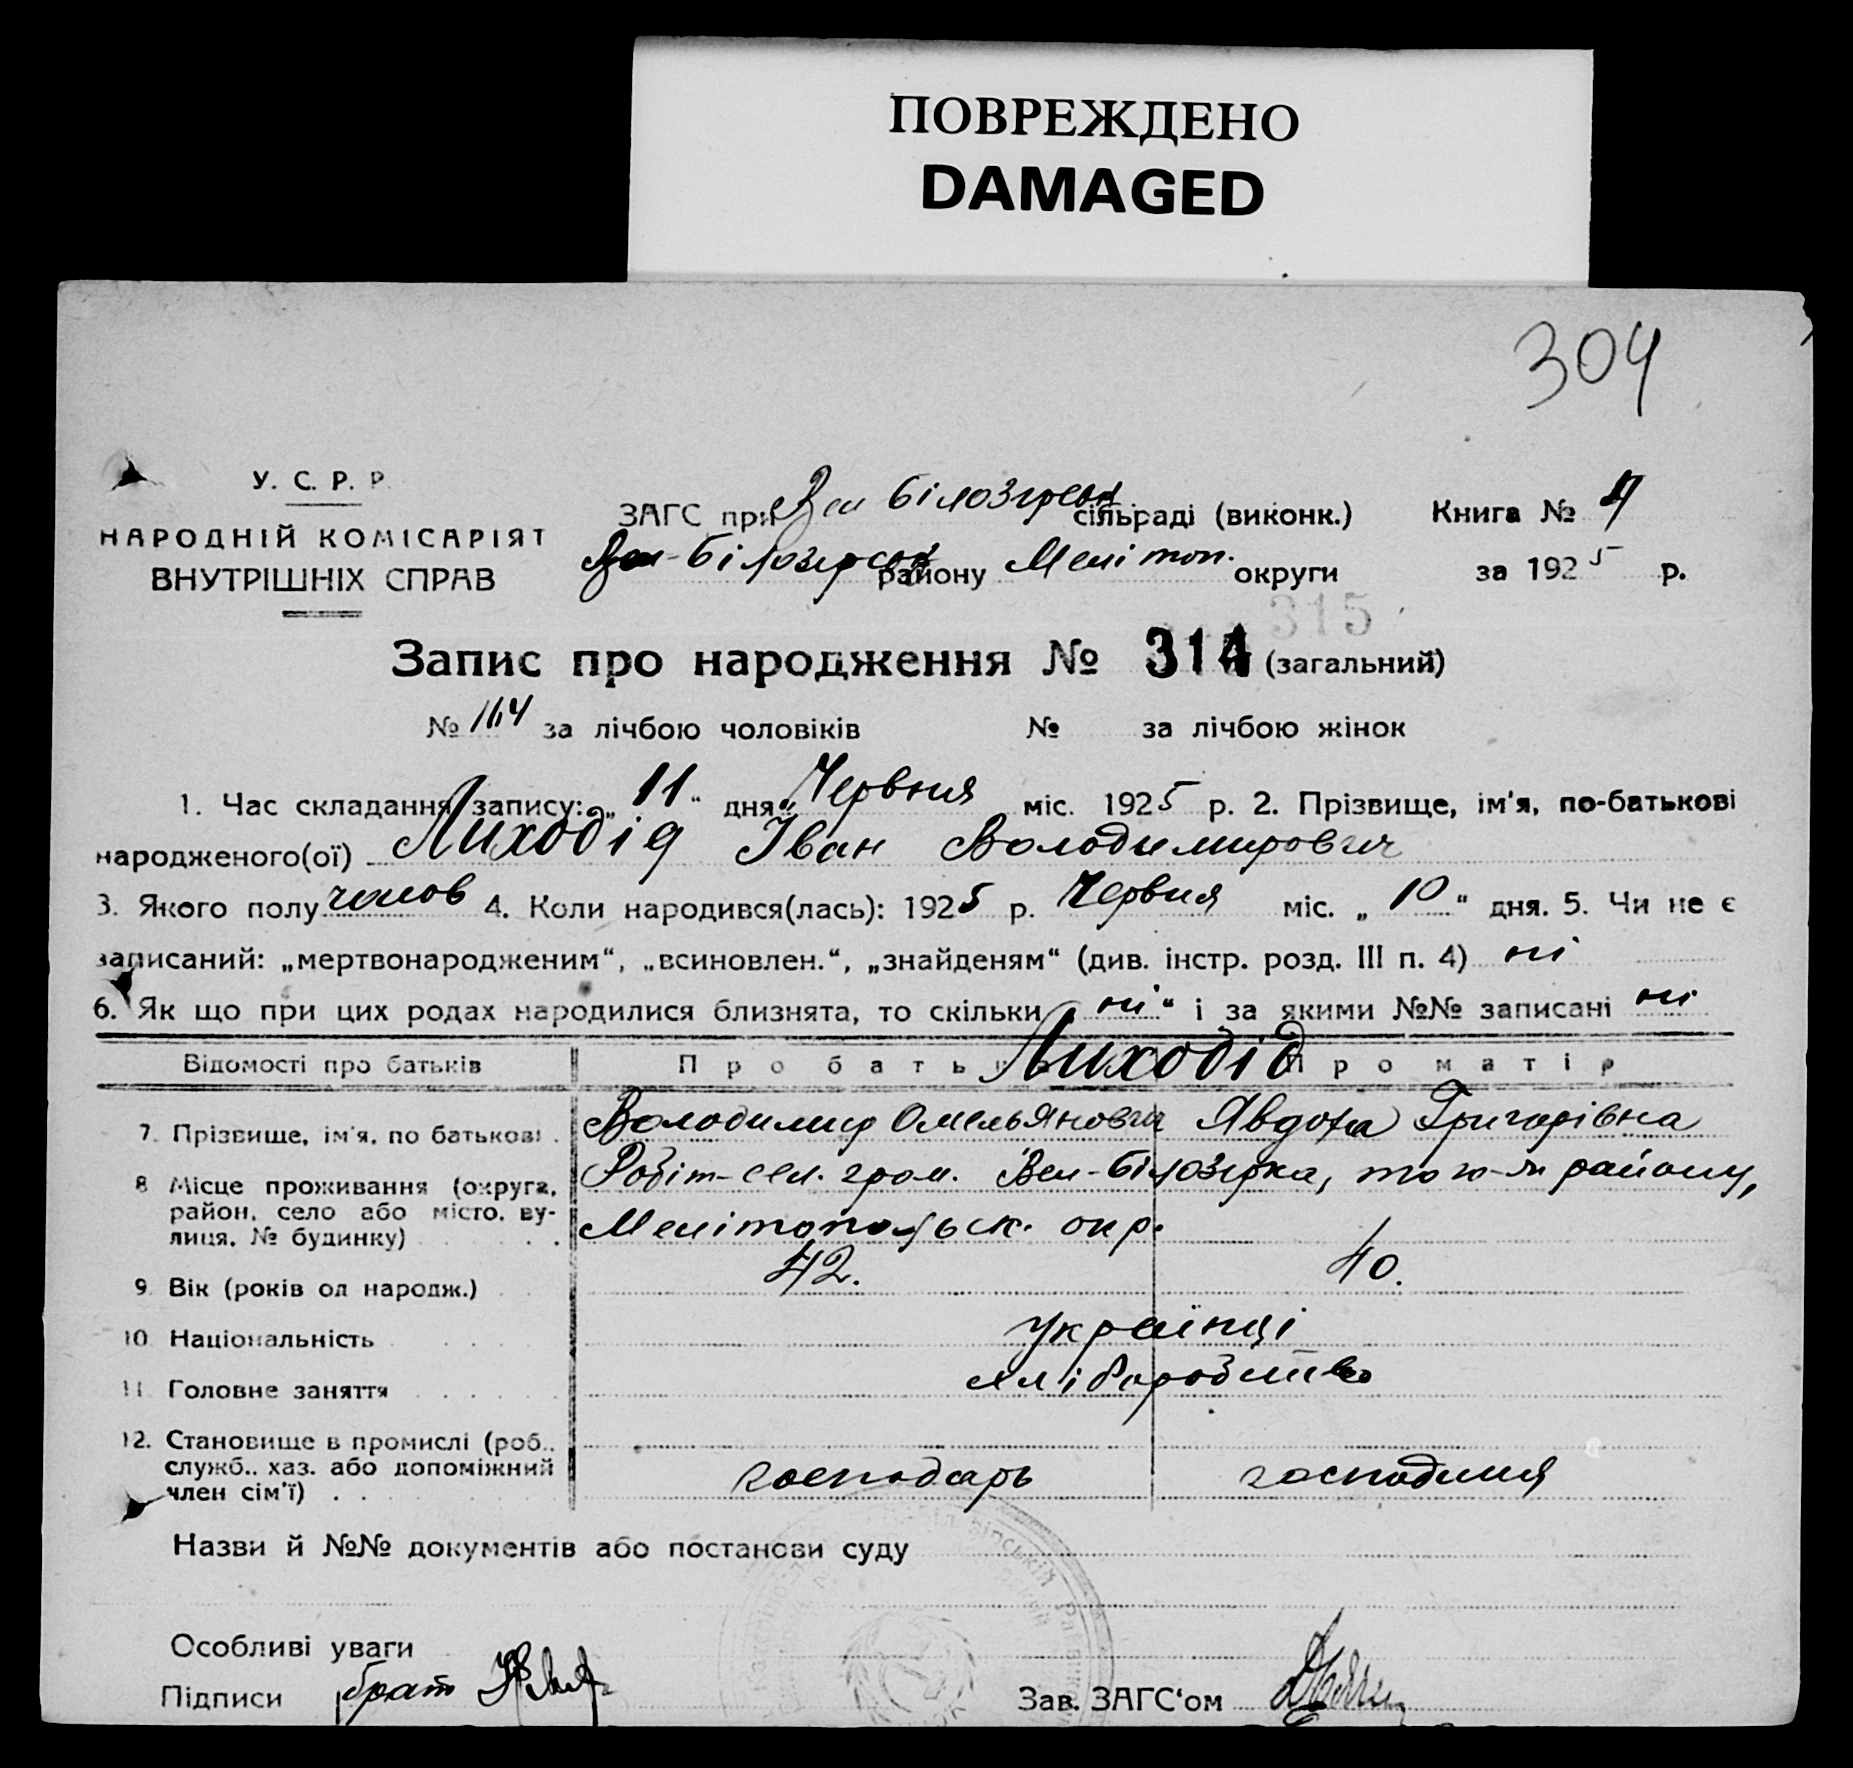 ПОВРЕЖДЕНО
DAMAGED
304
У. С. Р. Р.
НАРОДНІЙ КОМІСАРІЯТ
ВНУТРІШНІХ СПРАВ
ЗАГС при Вел Білозерськ сільраді (виконк.) Книга № 4
Вел-Білозерськ району Мелітоп. округи за 1925 р.
315
Запис про народження № 314 (загальний)
№ 164 за лічбою чоловіків № за лічбою жінок
1. Час складання запису: „11“ дня „Червня міс. 1925 р. 2. Прізвище, ім'я, по-батькові
народженого(ої) Лиходід Іван Володимирович
3. Якого полу чолов 4. Коли народився(лась): 1925 р. Червня міс. „10“ дня. 5. Чи не є
записаний: „мертвонародженим“, „всиновлен.“, „знайденям“ (див. інстр. розд. III п. 4) ні
6. Як що при цих родах народилися близнята, то скільки „ні“ і за якими №№ записані ні
Відомості про батьків Про батька Лиходід Про матір
7. Прізвище, ім'я, по батькові . Володимир Омельянович Явдоха Григорівна
8 Місце проживання (округа, район, село або місто, вулиця, № будинку) Робіт-сел. гром. Вел-Білозерка, того-ж району,
Мелітопольськ. окр.
9. Вік (років од народж.) 42. 40.
10 Національність українці
11. Головне заняття хліборобство
12. Становище в промислі (роб.,
служб., хаз. або допоміжний
член сім'ї) . . господарь господиня
Назви й №№ документів або постанови суду
Особливі уваги
Підписи брат Зав. ЗАГС‘ом